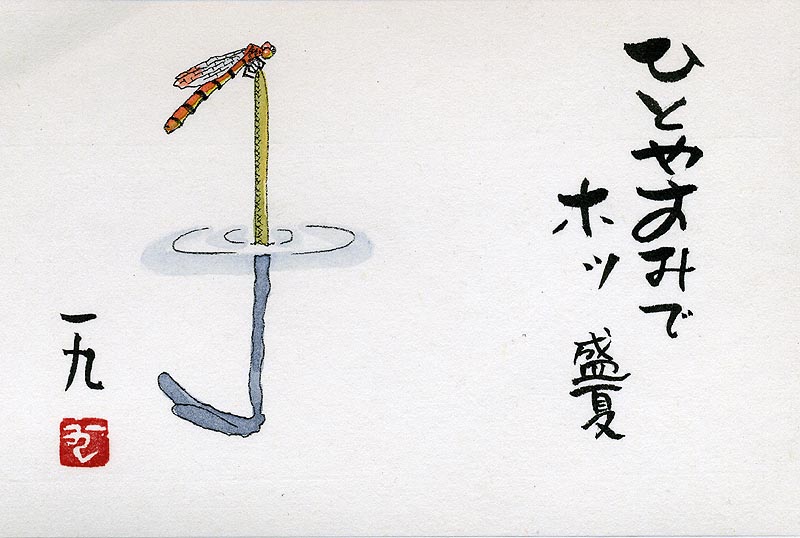 ひとやすみで
ホッ
盛夏
一九